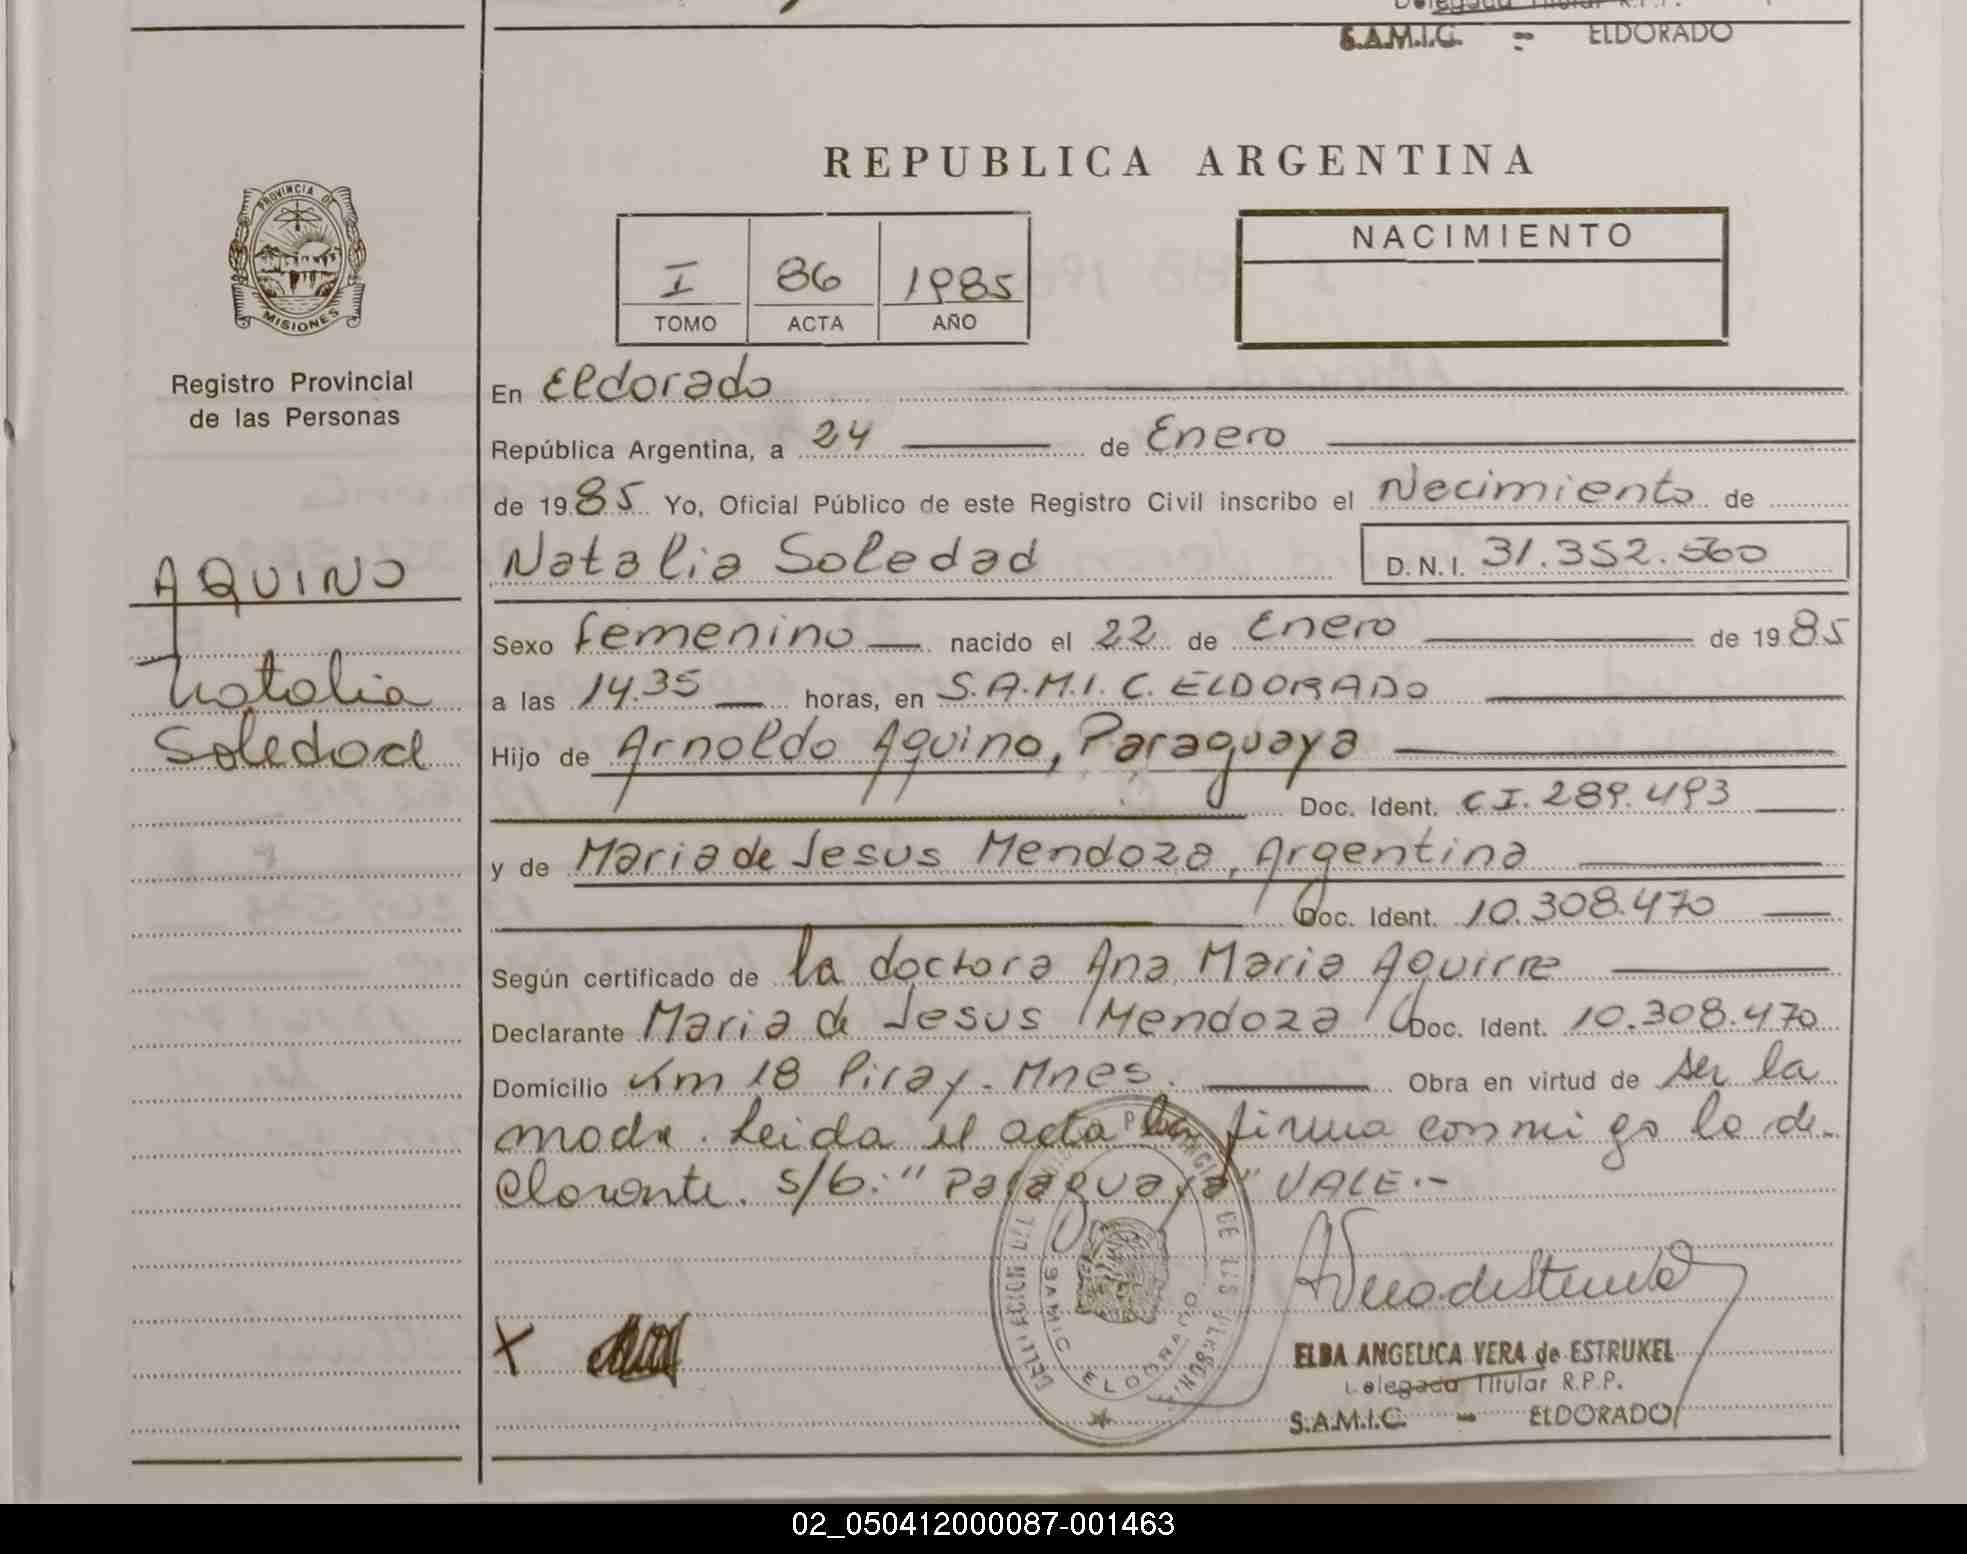 S.A.M.I.C. - ELDORADO
REPUBLICA ARGENTINA
PROVINCIA DE
MISIONES
Registro Provincial
de las Personas
I 86 1985
TOMO ACTA AÑO
NACIMIENTO
En Eldorado
República Argentina, a 24 de Enero
de 1985 Yo, Oficial Público de este Registro Civil inscribo el Necimiento de
Natalia Soledad D.N.I. 31.352.560
AQUINO
Natalia
Soledad
Sexo femenino nacido el 22 de Enero de 1985
a las 14.35 horas, en S.A.M.I.C. ELDORADO
Hijo de Arnoldo Aquino, Paraguaya
Doc. Ident. C I. 289.493
y de Maria de Jesus Mendoza, Argentina
Doc. Ident. 10.308.470
Según certificado de la doctora Ana Maria Aguirre
Declarante Maria de Jesus Mendoza Doc. Ident. 10.308.470
Domicilio Km 18 Piray - Mnes. Obra en virtud de ser la
madre. Leida el acta la firma conmigo la de-
clarante. s/b: "Paraguaya" VALE.-
X
SAMIC ELDORADO
ELBA ANGELICA VERA de ESTRUKEL
Delegada Titular R.P.P.
S.A.M.I.C. - ELDORADO
02_050412000087-001463